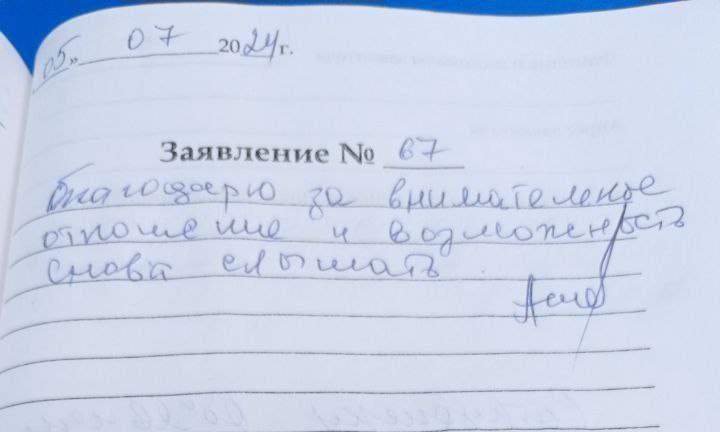 05» 07 2024г.
Заявление № 67
благодарю за внимательное
отношение и возможность
снова слышать